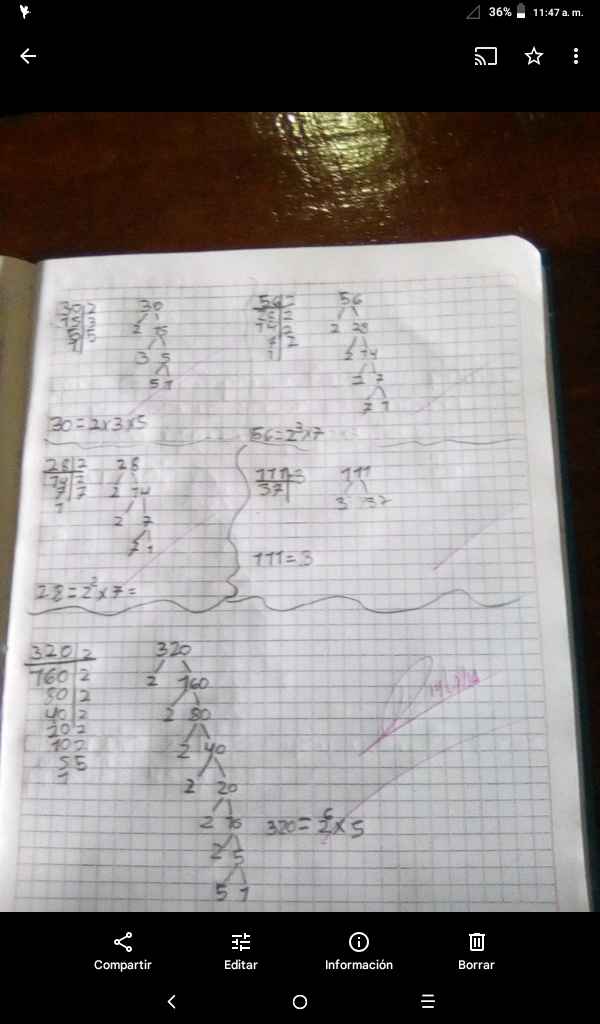 36% 11:47 a. m.
30|2
15|3
5|5
1
30
2 15
3 5
5 1
30=2x3x5
56|2
28|2
14|2
7|2
1
56
2 28
2 14
2 7
7 1
56=2³x7
28|2
14|2
7|7
1
28
2 14
2 7
7 1
28=2²x7=
111|3
37|
111
3 37
111=3
320|2
160|2
80|2
40|2
20 2
10 2
5 5
1
320
2 160
2 80
2 40
2 20
2 10
2 5
5 1
320=2⁶x5
Compartir
Editar
Información
Borrar